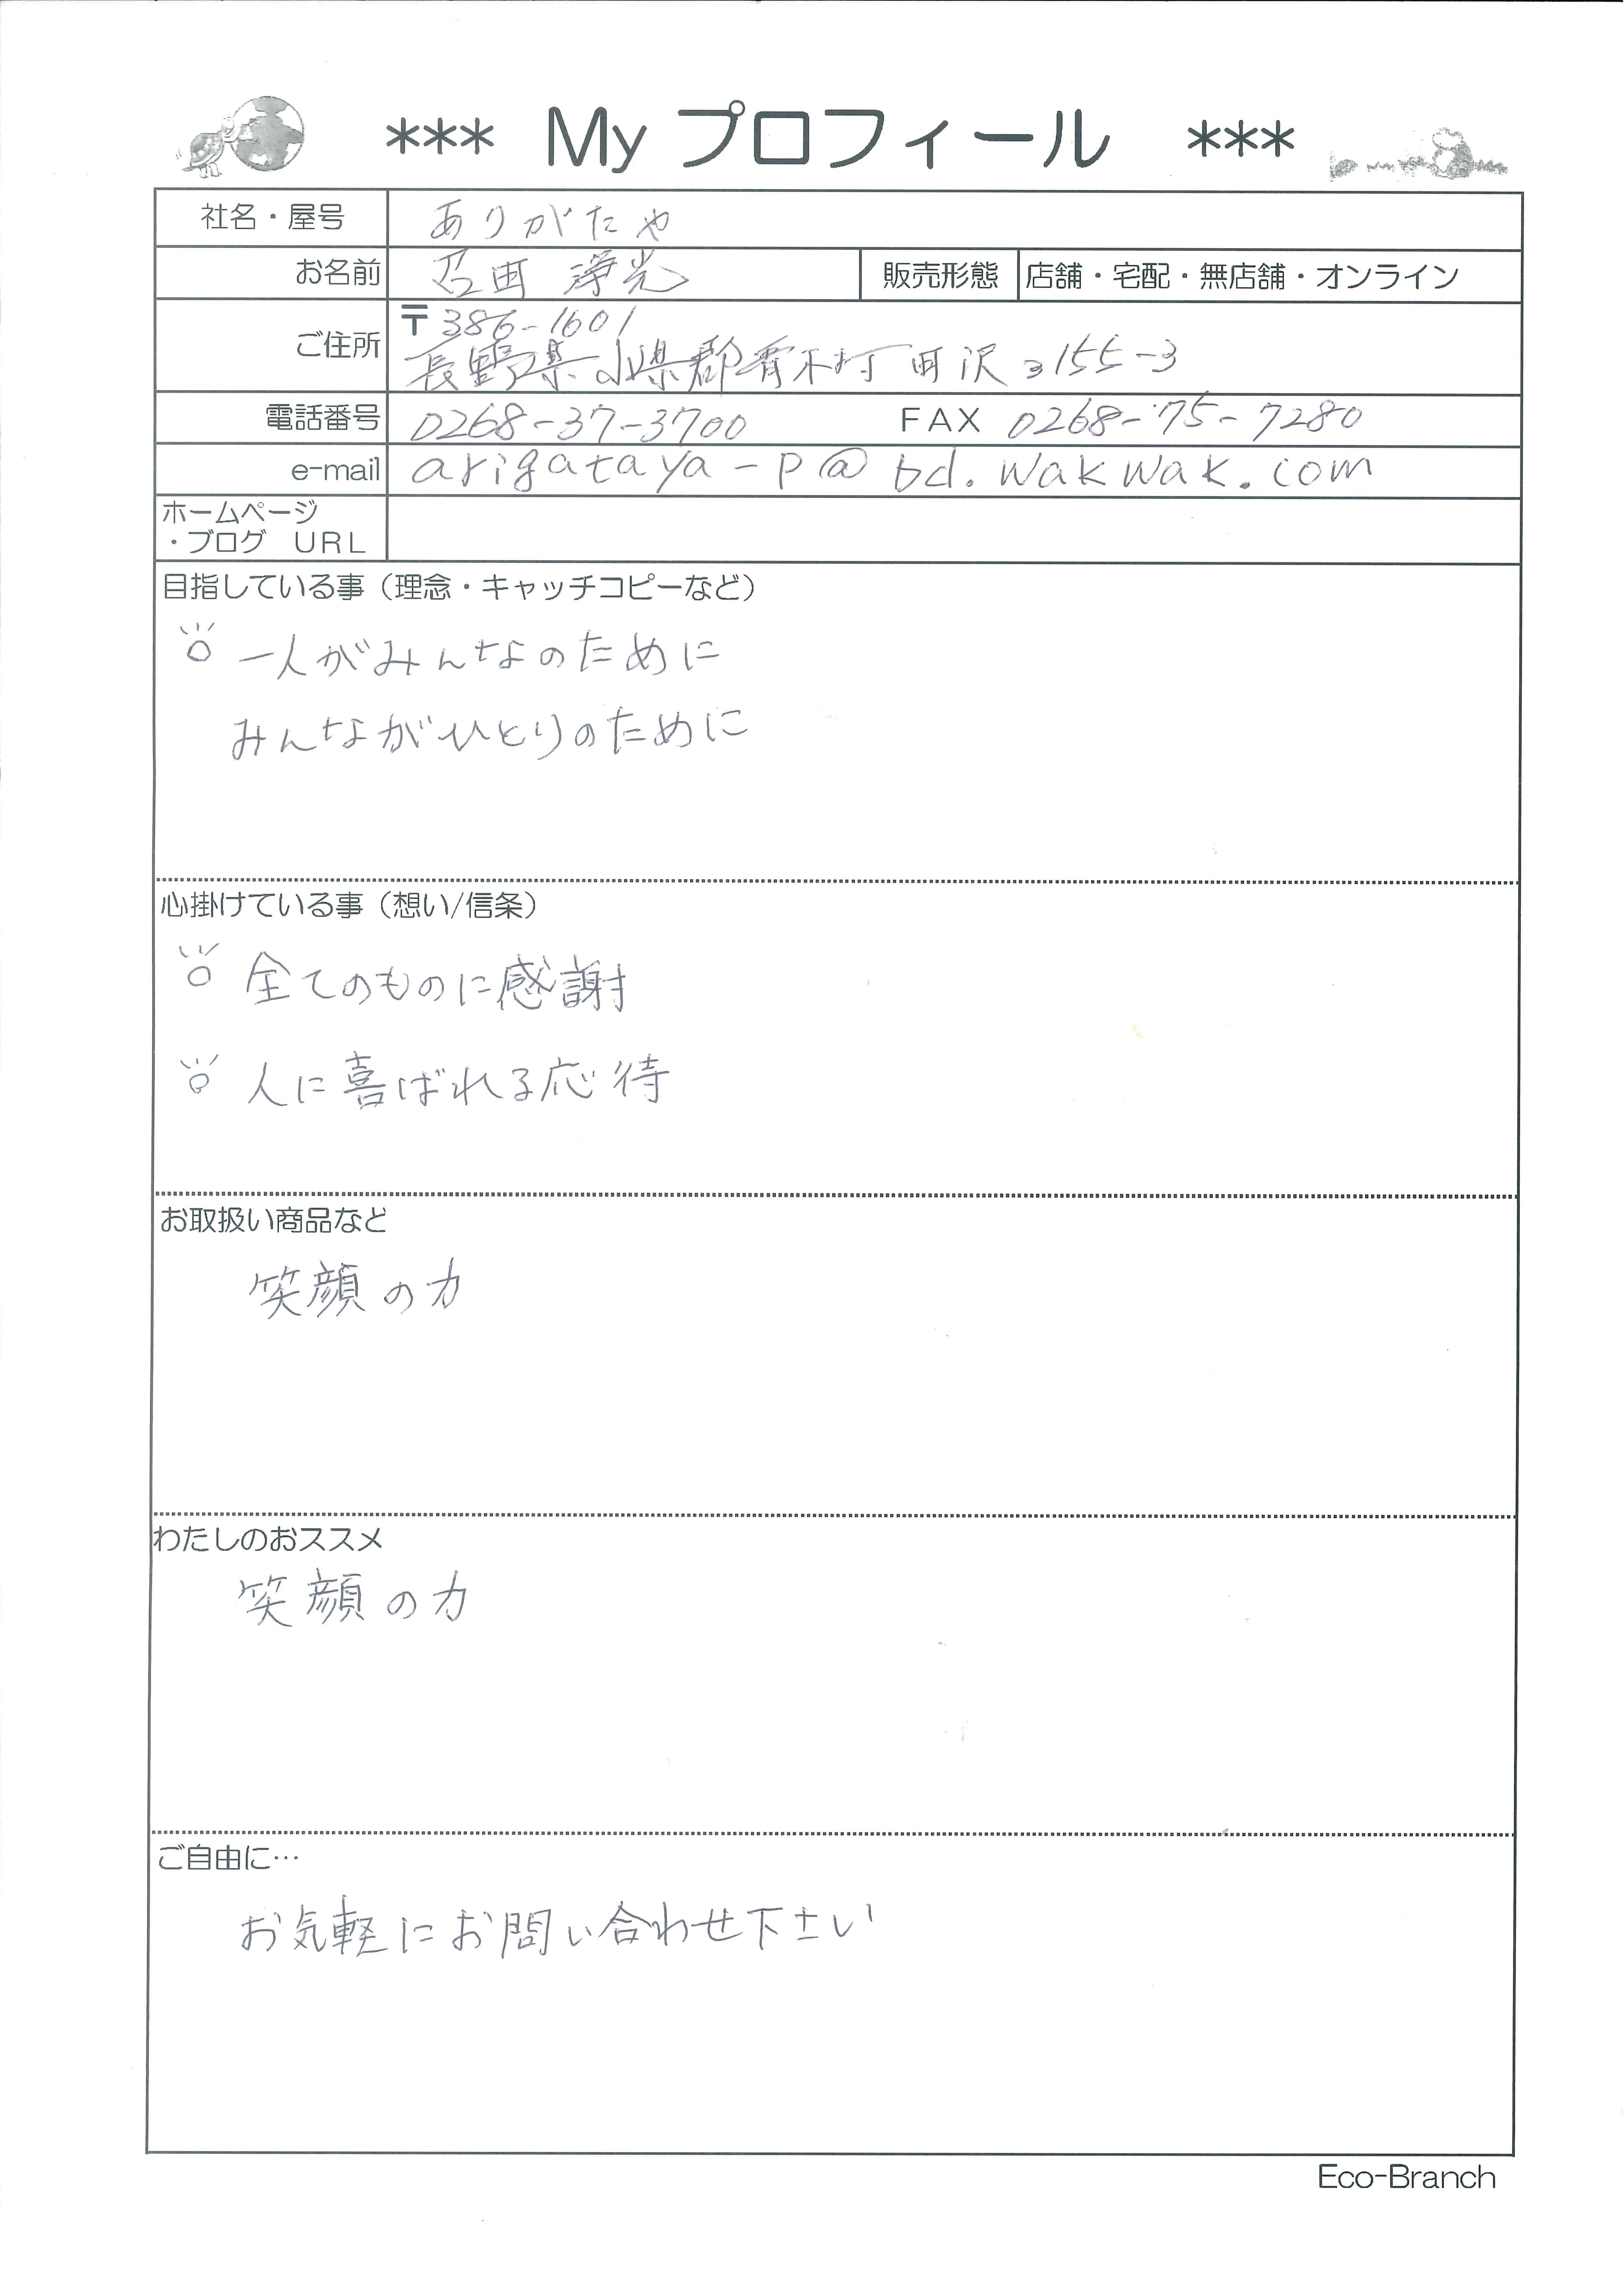 *** My プロフィール ***
社名・屋号 ありがたや
お名前 沼田 淨光 販売形態 店舗・宅配・無店舗・オンライン
ご住所 〒386-1601
長野県小県郡青木村田沢3155-3
電話番号 0268-37-3700 FAX 0268-75-7280
e-mail arigataya-p@bd.wakwak.com
ホームページ
・ブログ URL
目指している事（理念・キャッチコピーなど）
一人がみんなのために
みんながひとりのために
心掛けている事（想い/信条）
全てのものに感謝
人に喜ばれる応待
お取扱い商品など
笑顔の力
わたしのおススメ
笑顔の力
ご自由に…
お気軽にお問い合わせ下さい
Eco-Branch